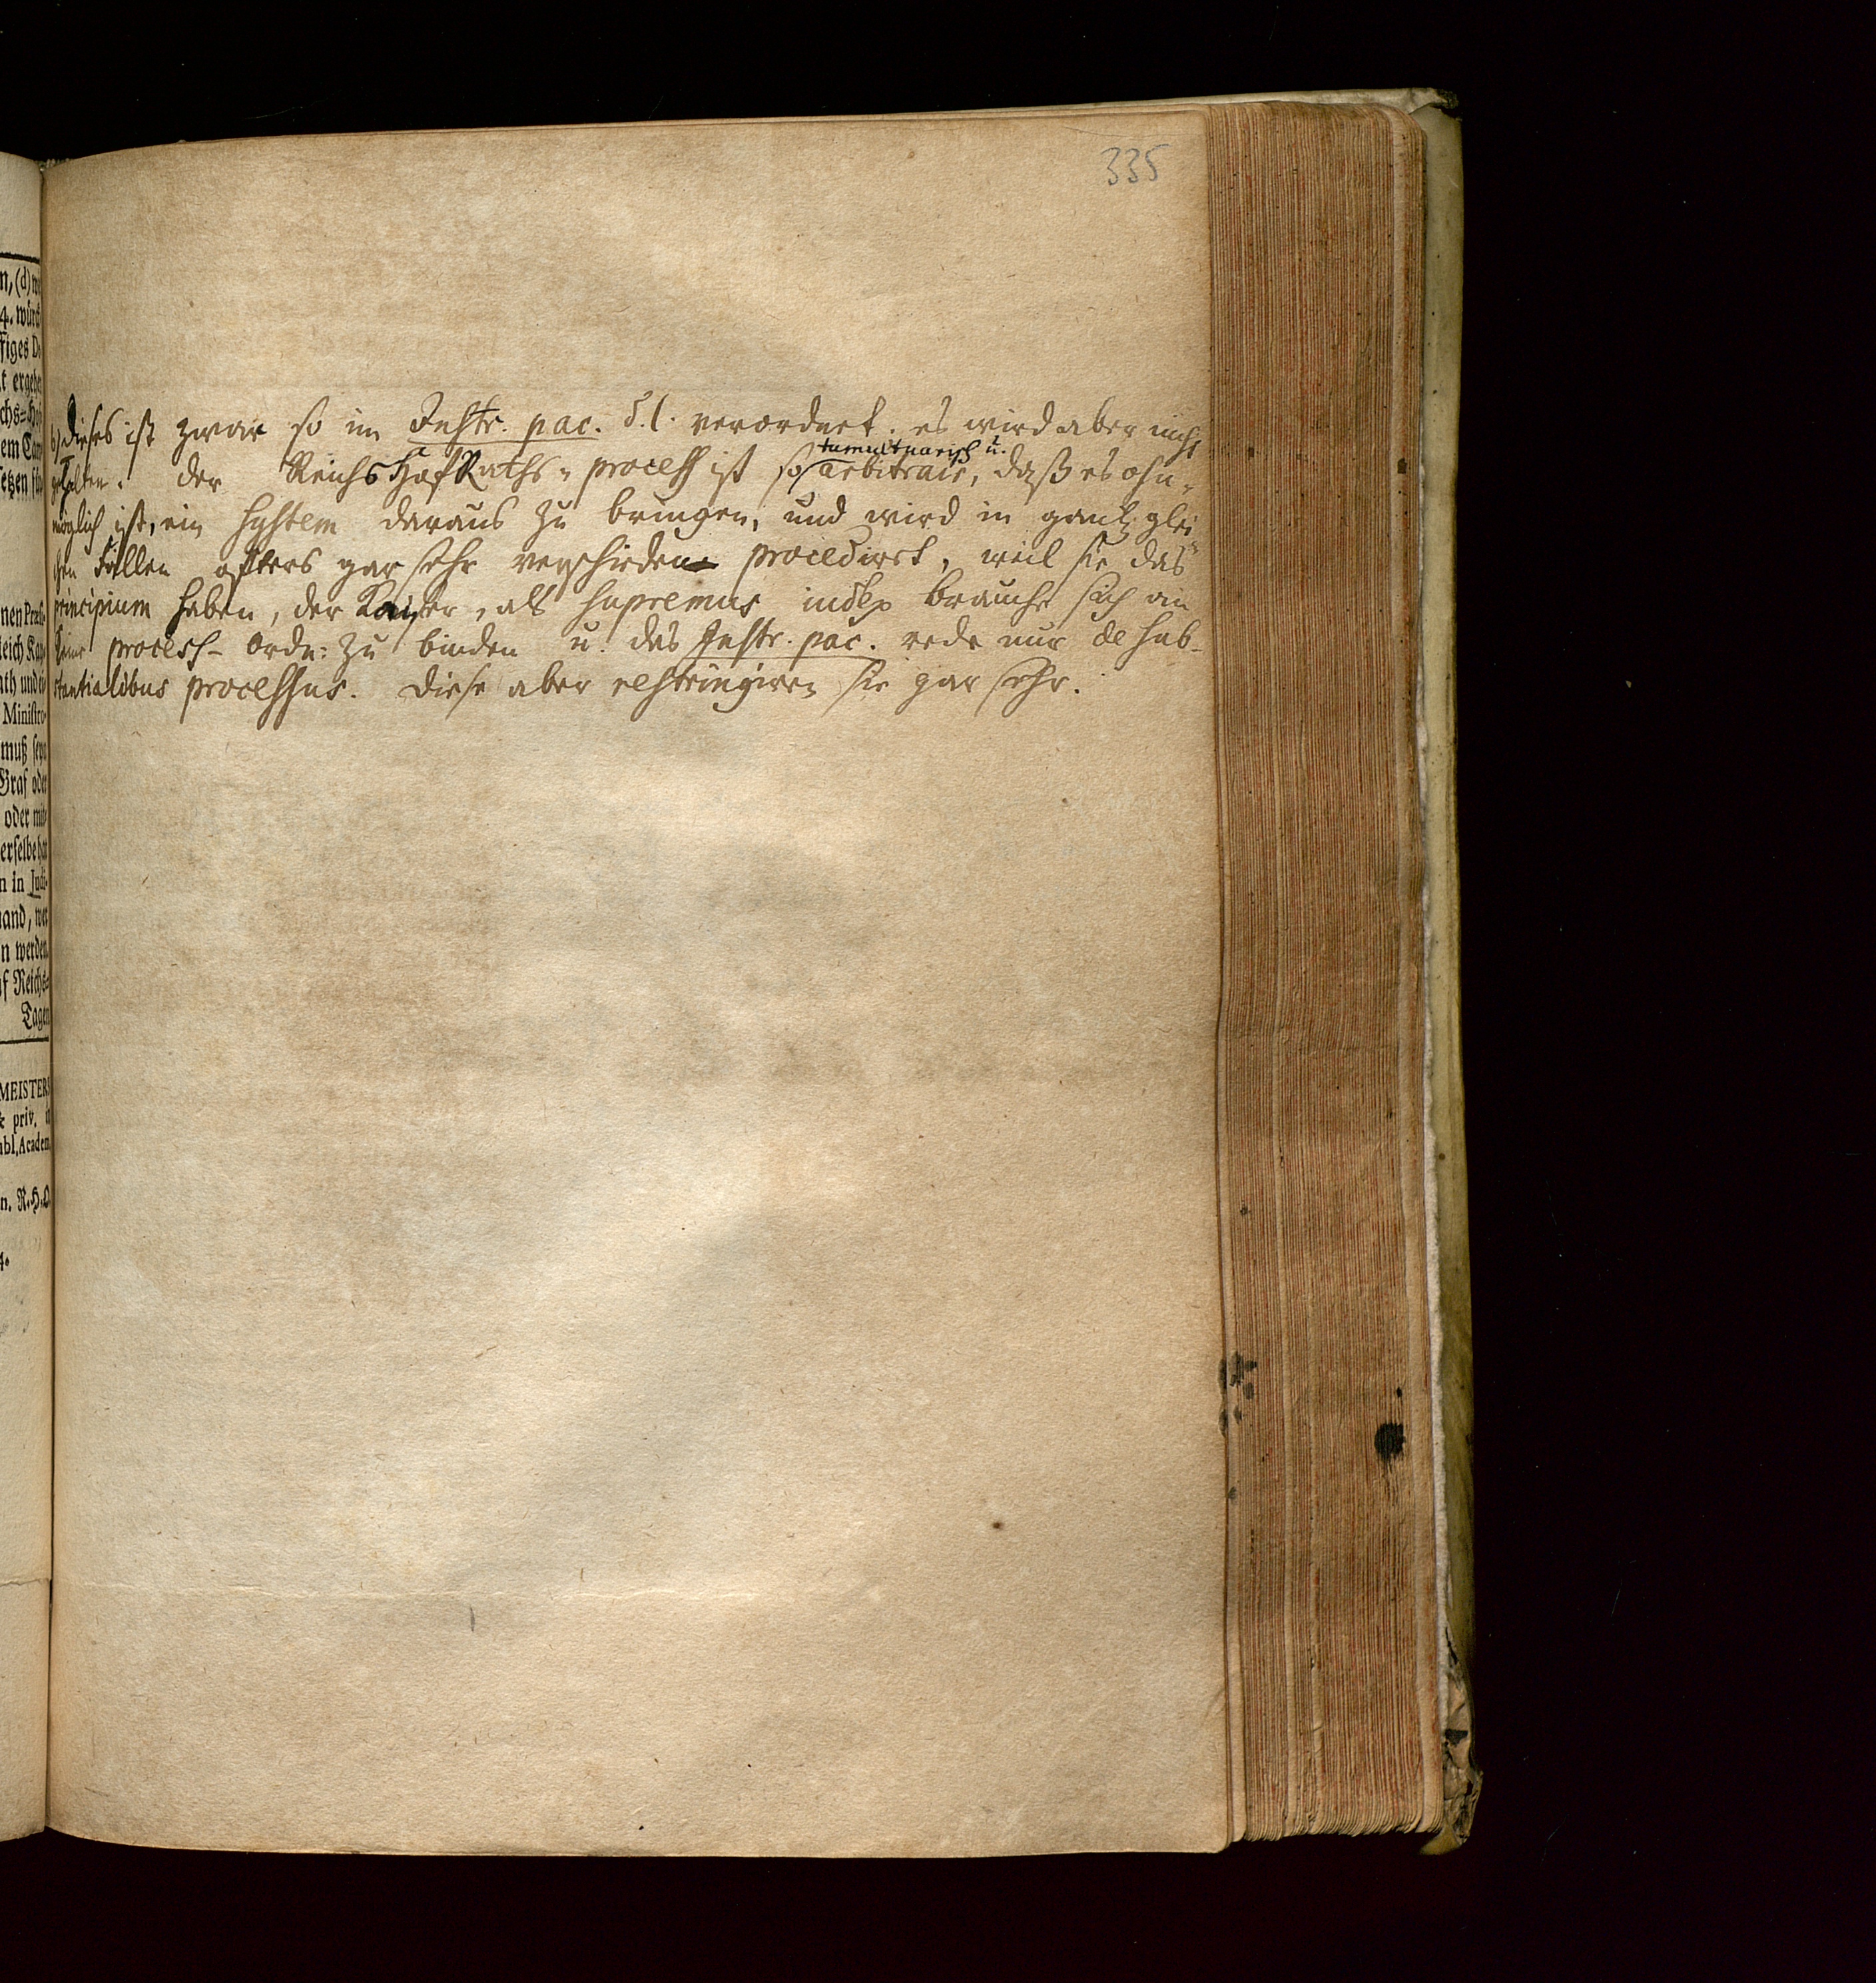 335
n, (d)
4. würd
figes D.
t ergebe
chs-Ho
em Cam
setzen
nen Præs
leich Kay
ath und
Ministro-
muß seyn
Graf oder
oder mit-
erselbe hat
n in Judi-
and, wer
n werden.
f Reichs-
Tagen
MEISTERS
& priv. 
ubl. Academ
n. R.H.O.
4.
b) Dieses ist zwar so im Instr. pac. d. l. verordnet. es wird aber nicht
gehalten. der Reichs HofRaths-process ist so tumultuarisch u. arbitrair, daß es ohn-
möglich ist, ein System daraus zu bringen, und wird in gantz glei-
chen Fällen öfters gar sehr verschieden procedirt, weil sie das
principium haben, der Kaiser, als supremus iudex brauche sich an
keine process-Ordn: zu binden u. das Instr. pac. rede nur de sub-
stantialibus processus. diese aber restringiren sie gar sehr.